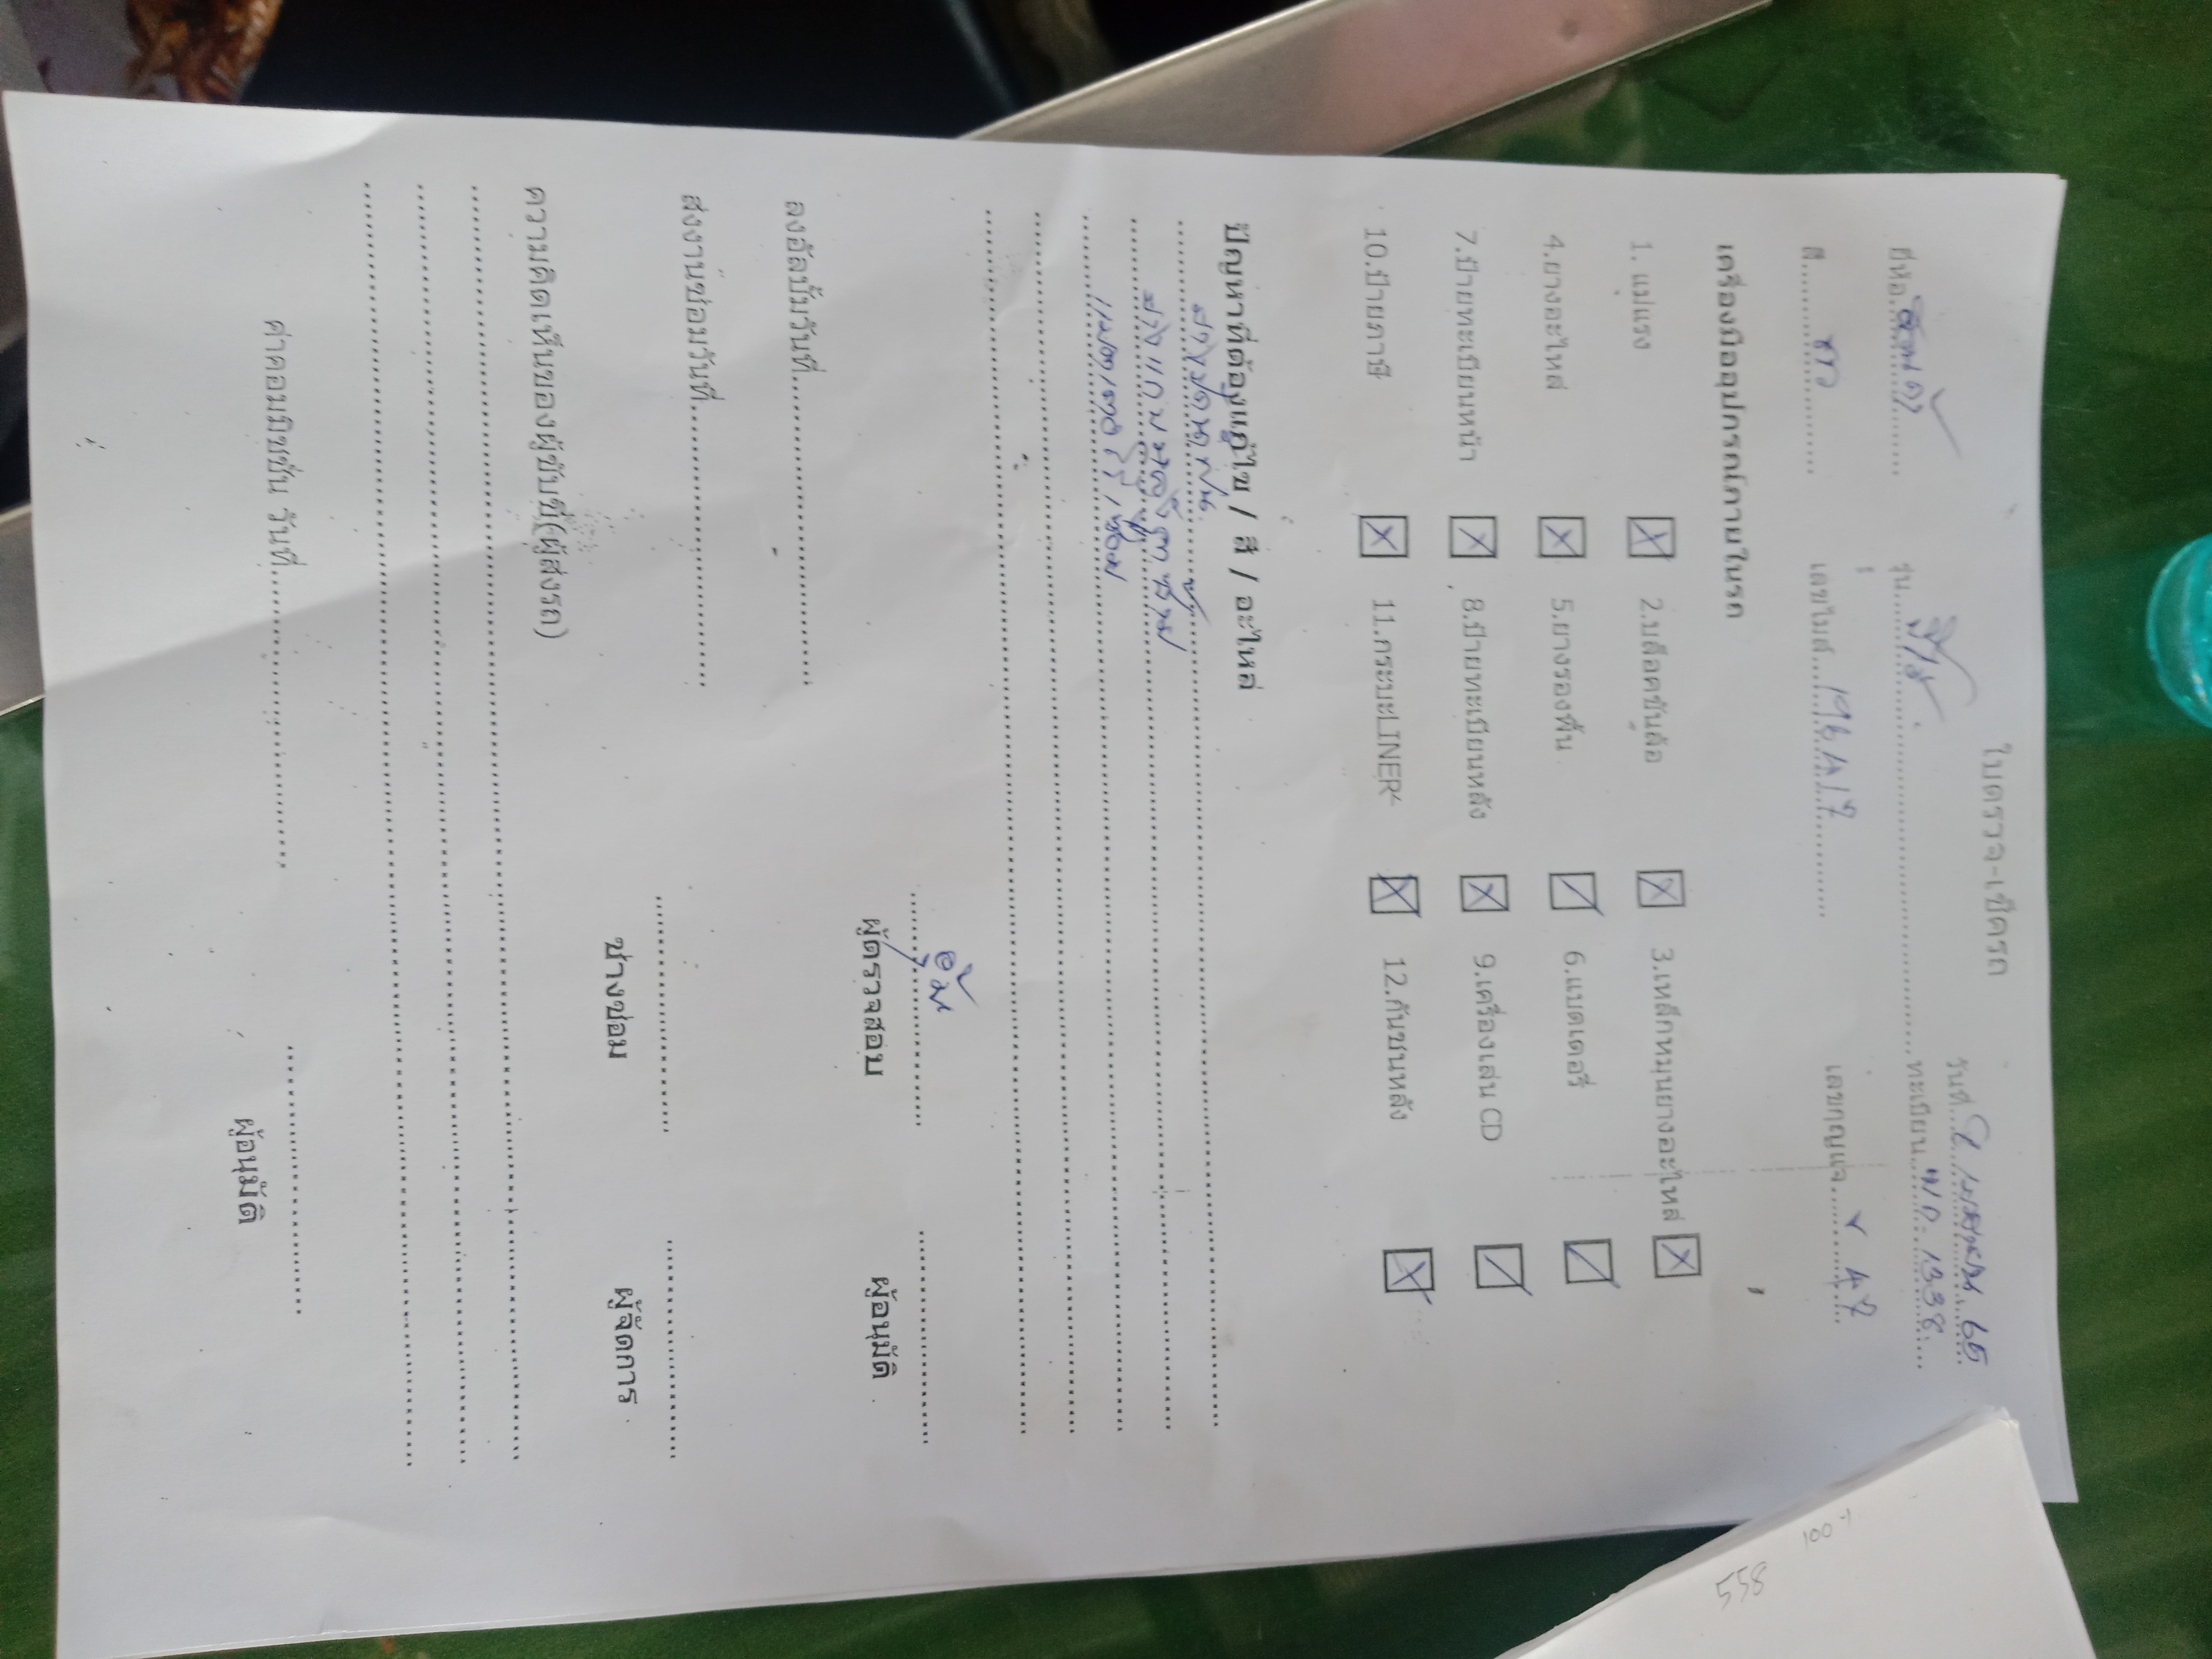 ใบตรวจ-เช็ครถ
วันที่ 9 เมษายน 65
ยี่ห้อ ฮอนด้า รุ่น ทะเบียน 1338
สี ขาว เลขไมล์ เลขกุญแจ 47
เครื่องมืออุปกรณ์ภายในรถ
1. แม่แรง 2.บล็อคขันล้อ 3.เหล็กหมุนยางอะไหล่
4.ยางอะไหล่ 5.ยางรองพื้น 6.แบตเตอรี่
7.ป้ายทะเบียนหน้า 8.ป้ายทะเบียนหลัง 9.เครื่องเล่น CD
10.ป้ายภาษี 11.กระบะLINER 12.กันชนหลัง
ปัญหาที่ต้องแก้ไข / สี / อะไหล่
ผู้ตรวจสอบ ผู้อนุมัติ
ลงอัลบั้มวันที่
ช่างซ่อม ผู้จัดการ
ส่งงานซ่อมวันที่
ความคิดเห็นของผู้ขับขี่(ผู้ส่งรถ)
ค่าคอมมิชชั่น วันที่
ผู้อนุมัติ
100-1
558